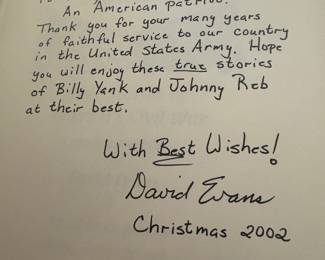 An American patriot.
Thank you for your many years
of faithful service to our country
in the United States Army. Hope
you will enjoy these true stories
of Billy Yank and Johnny Reb
at their best.
With Best Wishes!
David Evans
Christmas 2002